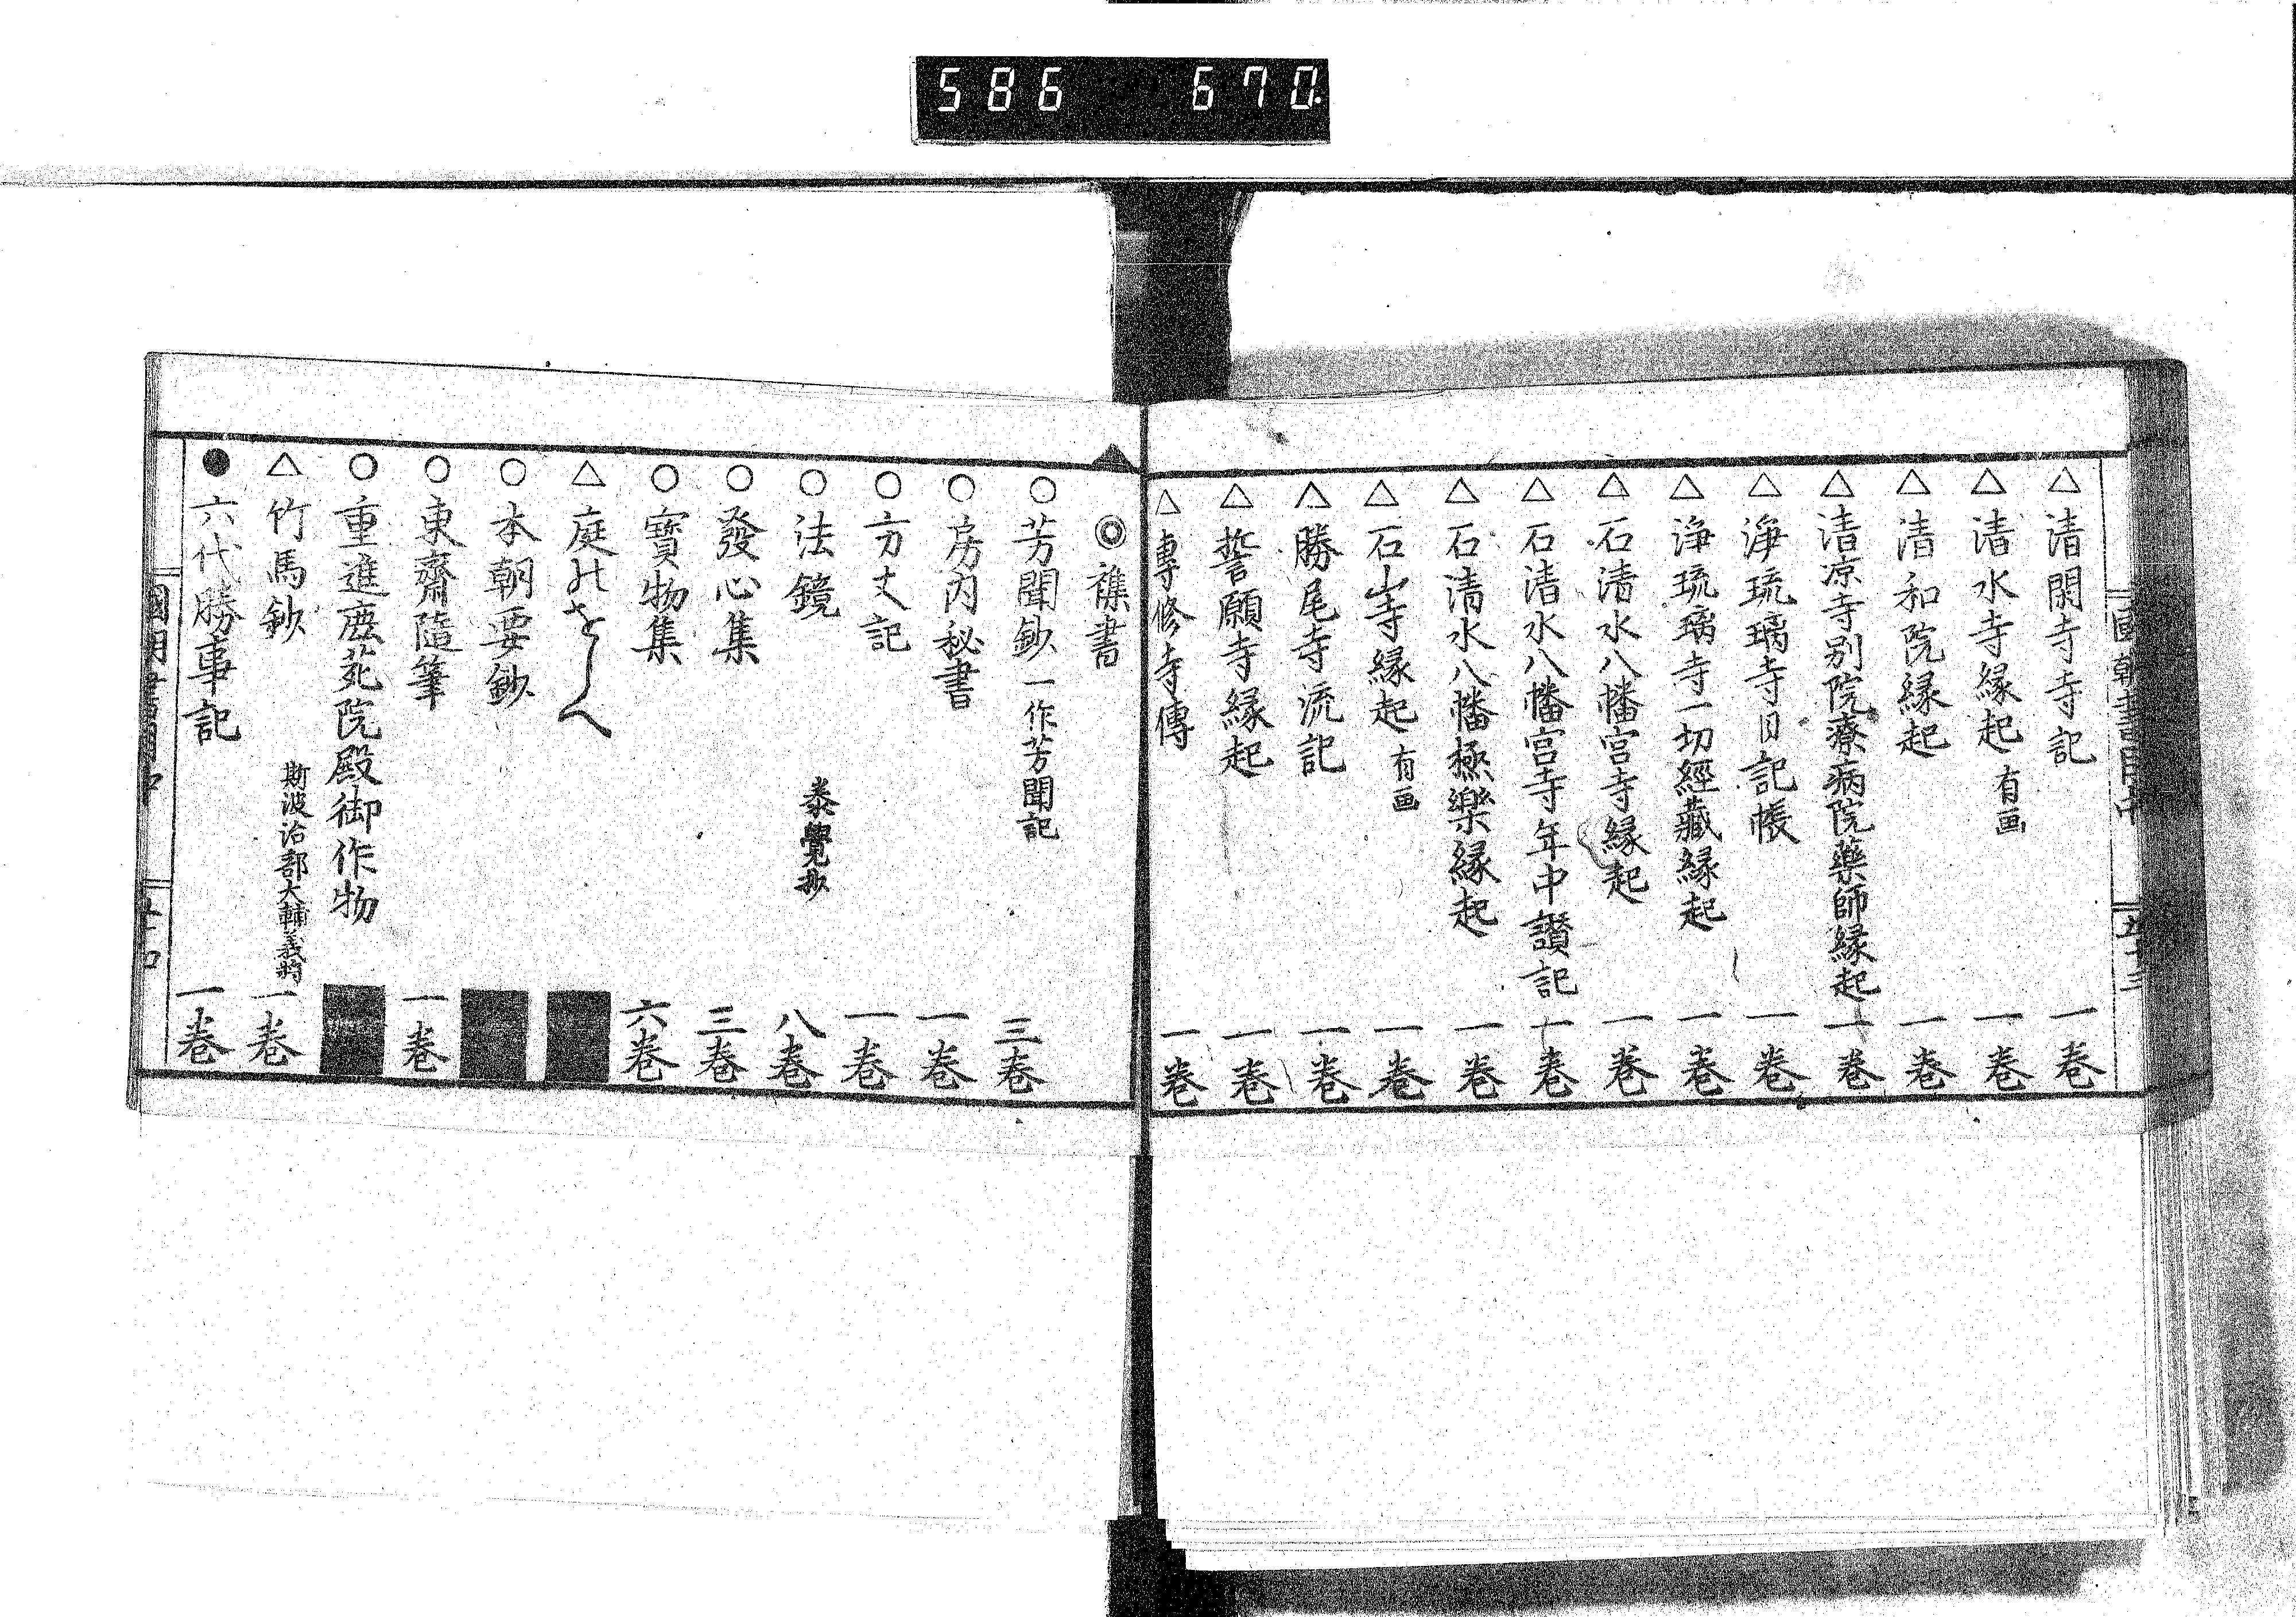 586 670.
國朝書目中 五十三
△清閑寺寺記 一巻
△清水寺縁起 有画 一巻
△清和院縁起 一巻
△清凉寺別院療病院藥師縁起 一巻
△淨琉璃寺旧記帳 一巻
△淨琉璃寺一切經藏縁起 一巻
△石清水八幡宮寺縁起 一巻
△石清水八幡宮寺年中讃記 一巻
△石清水八幡極樂縁起 一巻
△石山寺縁起 有画 一巻
△勝尾寺流記 一巻
△誓願寺縁起 一巻
△專修寺傳 一巻
◎襍書
○芳聞鈔 一作芳聞記 三巻
○房内秘書 一巻
○方丈記 一巻
○法鏡 泰覺抄 八巻
○發心集 三巻
○寳物集 六巻
△庭のをしへ
○本朝要鈔
○東齋隨筆 一巻
○重進鹿苑院殿御作物
△竹馬鈔 斯波治部大輔義將 一巻
●六代勝事記 一巻
國朝書目中